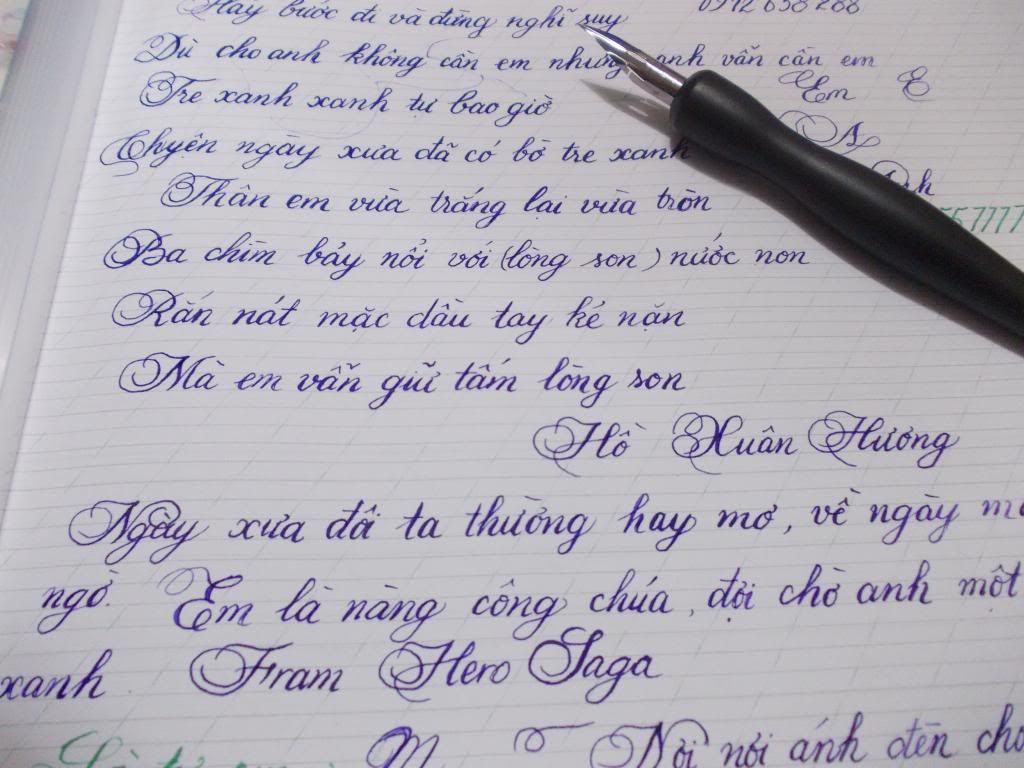 Hãy bước đi và đừng nghĩ suy 0942 638 288
Dù cho anh không cần em nhưng anh vẫn cần em
Em E
Tre xanh xanh tự bao giờ
A
Chyện ngày xưa đã có bờ tre xanh
Thân em vừa trắng lại vừa tròn
Ba chìm bảy nổi với (lòng son) nước non
Rắn nát mặc dầu tay kẻ nặn
Mà em vẫn giữ tấm lòng son
Hồ Xuân Hương
Ngày xưa đôi ta thường hay mơ, về ngày
ngơ. Em là nàng công chúa, đợi chờ anh một
xanh Fram Hero Saga
M Nơi nơi ánh đèn